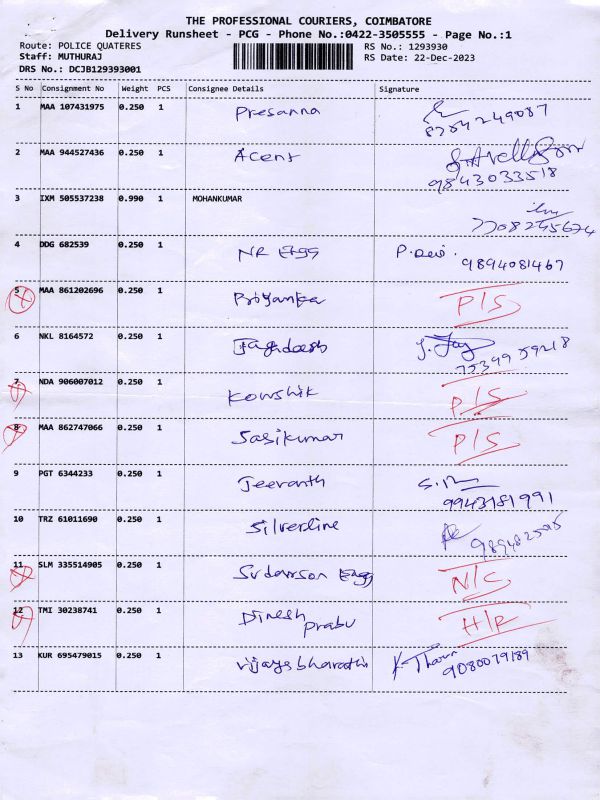 THE PROFESSIONAL COURIERS, COIMBATORE
Delivery Runsheet - PCG - Phone No.:0422-3505555 - Page No.:1
Route: POLICE QUATERES RS No.: 1293930
Staff: MUTHURAJ RS Date: 22-Dec-2023
DRS No.: DCJB129393001
S No Consignment No Weight PCS Consignee Details Signature
1 MAA 107431975 0.250 1 Presanna
8784249087
2 MAA 944527436 0.250 1 Acent
9843033518
3 IXM 505537238 0.990 1 MOHANKUMAR
7708245674
4 DDG 682539 0.250 1 NR Engg P. Devi.
9894081467
5 MAA 861202696 0.250 1 Priyanka P/S
6 NKL 8164572 0.250 1 Jaghdeesh J. Jay
75399 59218
7 NDA 906007012 0.250 1 Kowshik P/S
8 MAA 862747066 0.250 1 Sasikumar P/S
9 PGT 6344233 0.250 1 Jeevanth
9943181991
10 TRZ 61011690 0.250 1 Silverline
11 SLM 335514905 0.250 1 Sudarson Engg N/S
12 TMI 30238741 0.250 1 Dinesh Prabu H/R
13 KUR 695479015 0.250 1 Vijaysbharathi K. Tharun
9080079189